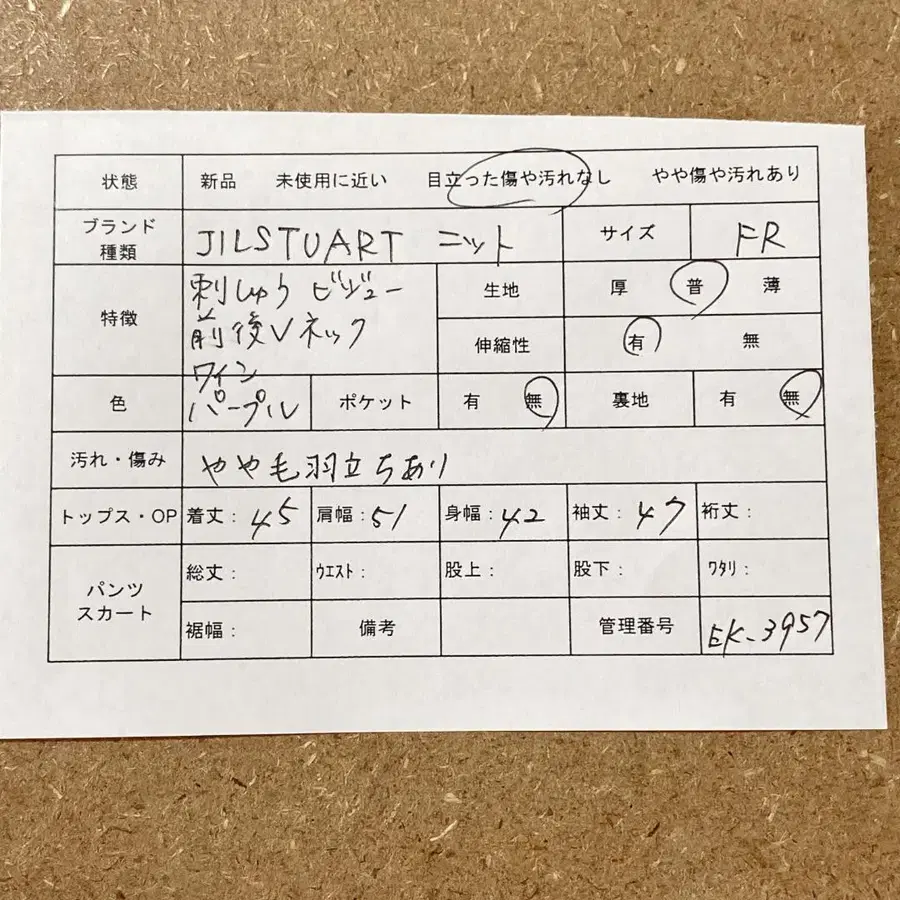 状態 新品 未使用に近い 目立った傷や汚れなし やや傷や汚れあり
ブランド
種類
JILSTUART ニット
サイズ
FR
特徴
刺しゅう ビジュー
前後Vネック
生地 厚 普 薄
伸縮性 有 無
色
ワイン
パープル
ポケット 有 無
裏地 有 無
汚れ・傷み
やや毛羽立ちあり
トップス・OP 着丈: 45 肩幅: 51 身幅: 42 袖丈: 47 裄丈:
パンツ
スカート
総丈: ｳｴｽﾄ: 股上: 股下: ﾜﾀﾘ:
裾幅: 備考 管理番号 EK-3957